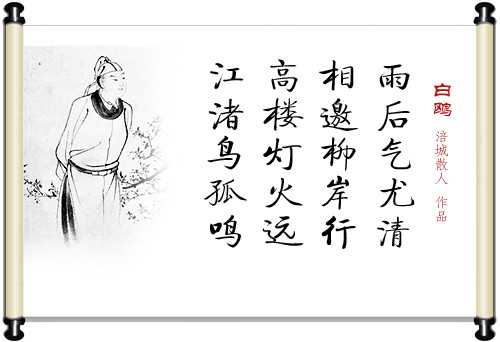 白鸥
涪城散人 作品
雨后气尤清
相邀柳岸行
高楼灯火远
江渚鸟孤鸣